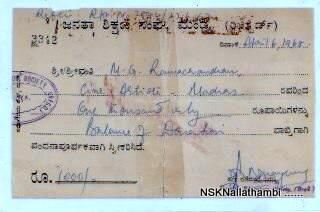 ಜನತಾ ಶಿಕ್ಷಣ ಸಂಘ
ದಿನಾಂಕ April 6, 1968
ಶ್ರೀ/ಶ್ರೀಮತಿ M. G. Ramachandran
Cine Artist - Madras ರವರಿಂದ
One thousand only ರೂಪಾಯಿಗಳನ್ನು
Balance of Donation ಬಾಬ್ತಿಗಾಗಿ
ವಂದನಾಪೂರ್ವಕವಾಗಿ ಸ್ವೀಕರಿಸಿದೆ.
ರೂ. 1000/-
NSKNallathambi ......